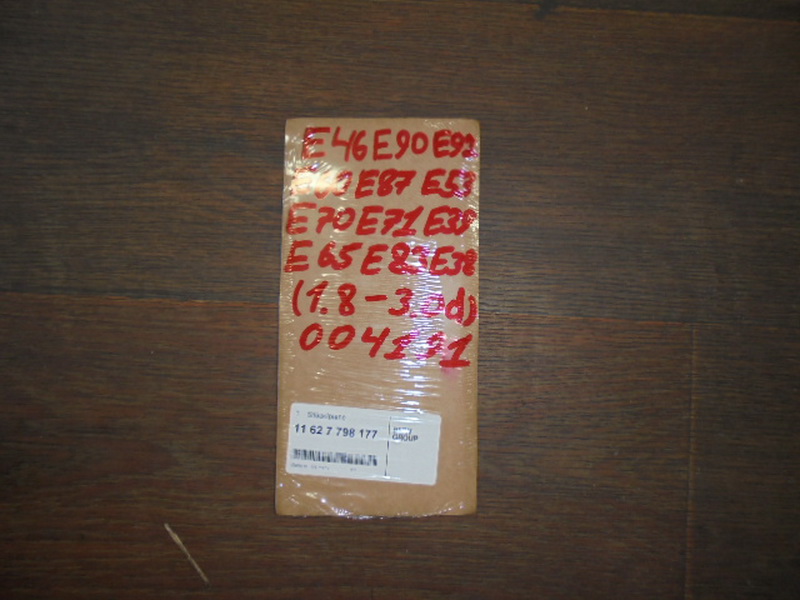 E46 E90 E92
E87 E53
E70 E71 E39
E65 E83 E38
(1.8 - 3.0d)
004191
11 62 7 798 177
GROUP